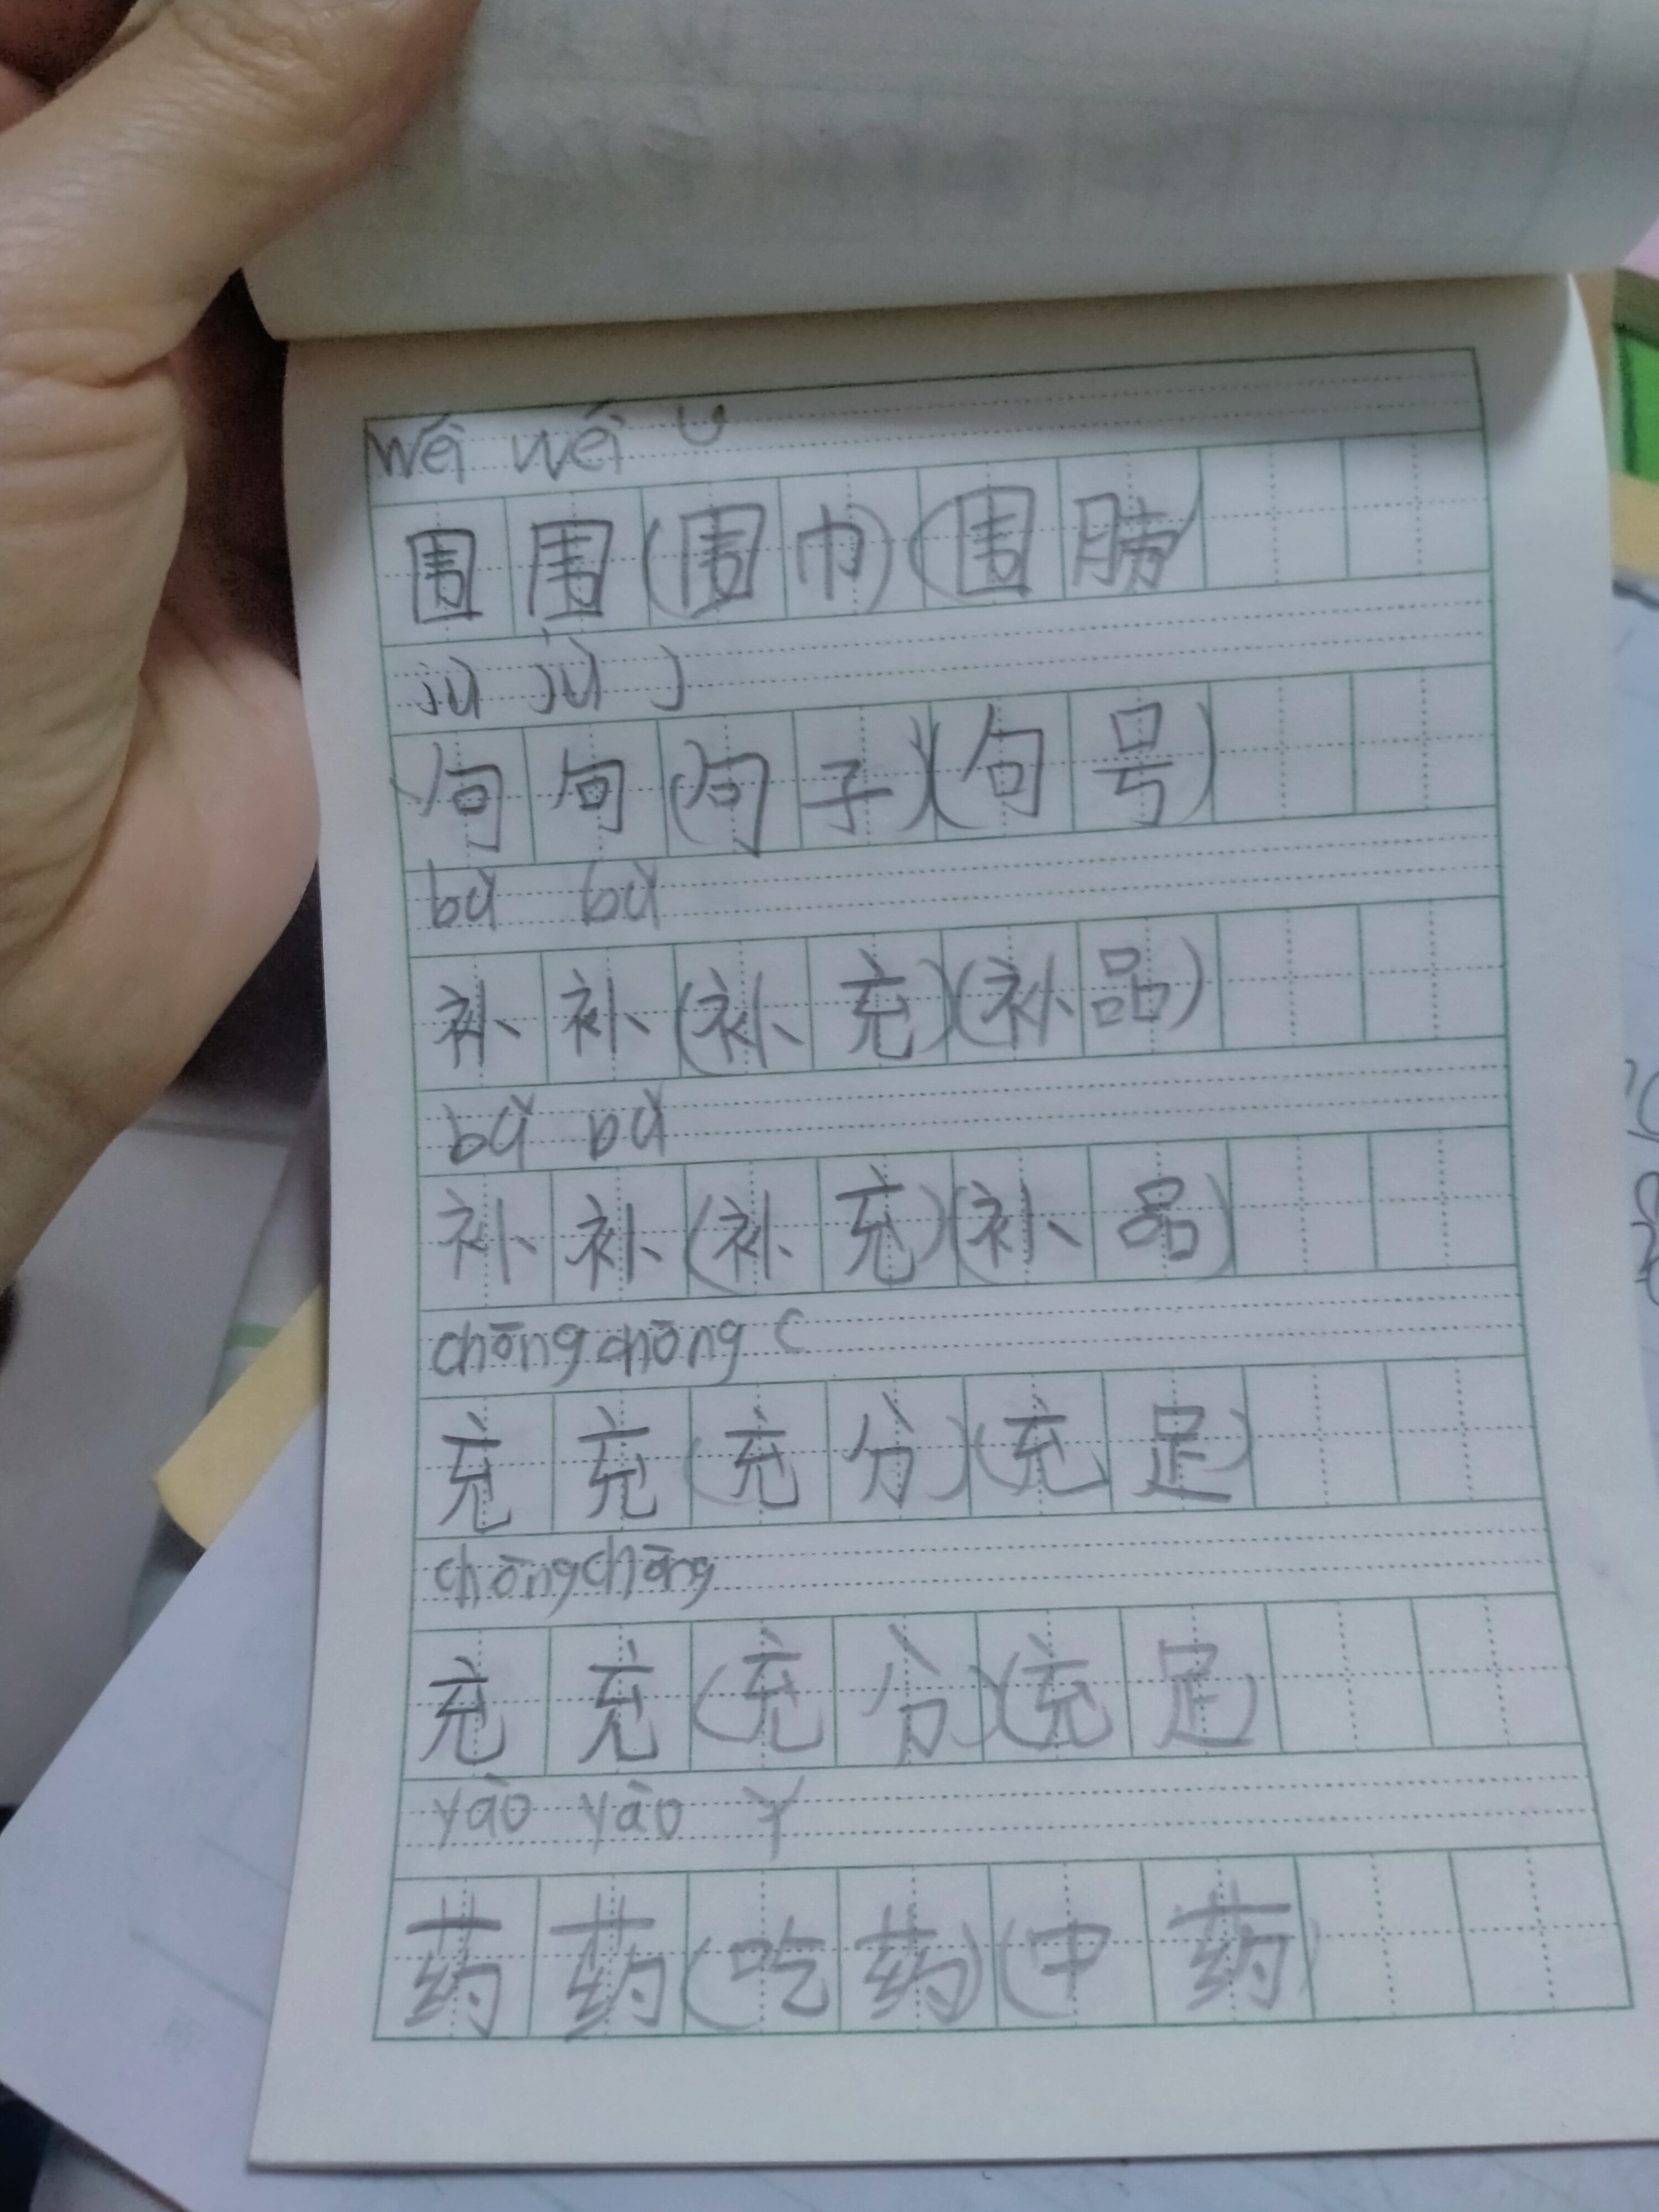 wéi wéi u
围围(围巾)(围
jù jù j
句句(句子)(句号)
bǔ bǔ
补补(补充)(补品)
bǔ bǔ
补补(补充)(补品)
chōng chōng c
充充(充分)(充足)
chōng chōng
充充(充分)(充足)
yào yào y
药药(吃药)(中药)